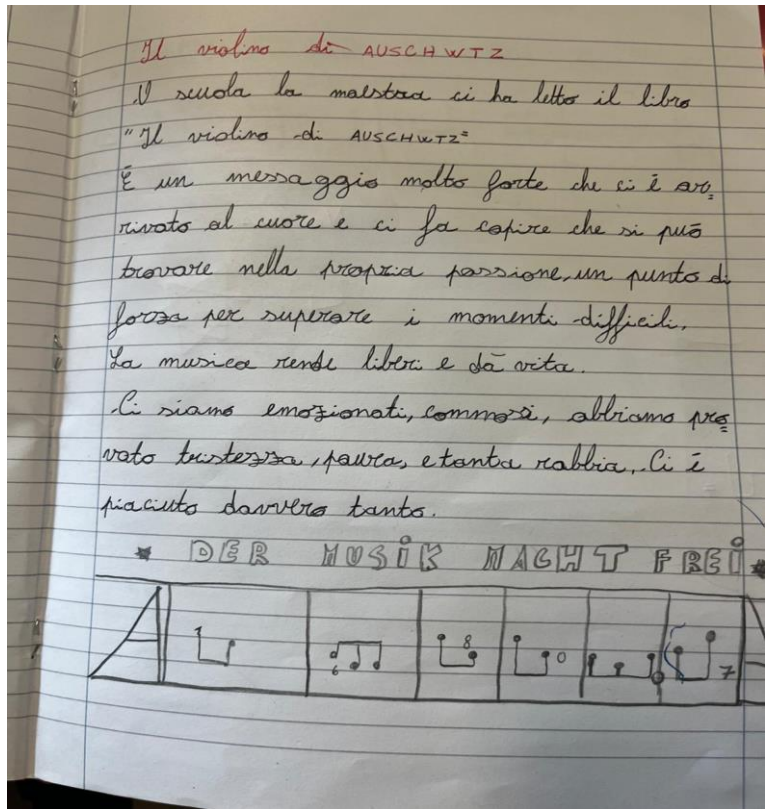 Il violino di AUSCHWTZ
A scuola la maestra ci ha letto il libro
"Il violino di AUSCHWTZ"
È un messaggio molto forte che ci è ar=
rivato al cuore e ci fa capire che si può
trovare nella propria passione, un punto di
forza per superare i momenti difficili.
La musica rende liberi e dà vita.
Ci siamo emozionati, commossi, abbiamo pro=
vato tristezza, paura, e tanta rabbia. Ci è
piaciuto davvero tanto.
* DER MUSIK MACHT FREI *
1 6 8 0 7